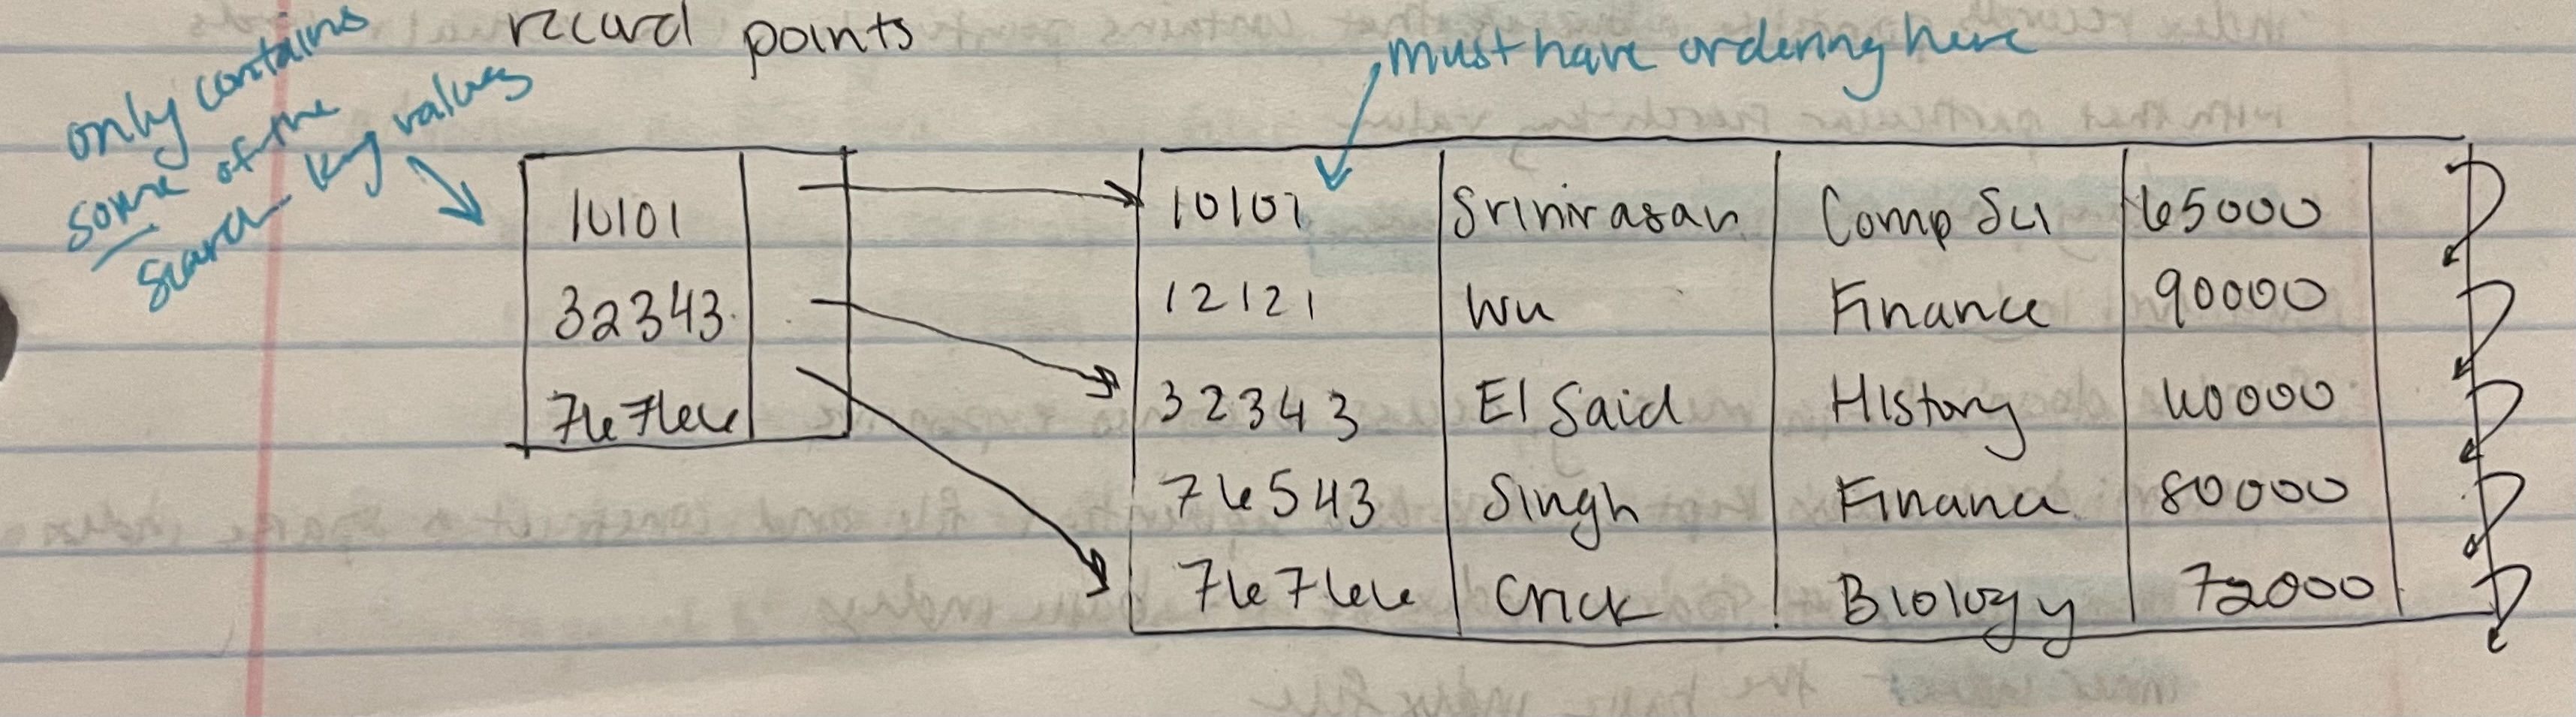 record points
only contains
some of the
search key values
must have ordering here
10101
32343
76766
10101 Srinivasan Comp Sci 65000
12121 Wu Finance 90000
32343 El Said History 60000
76543 Singh Finance 80000
76766 Crick Biology 72000